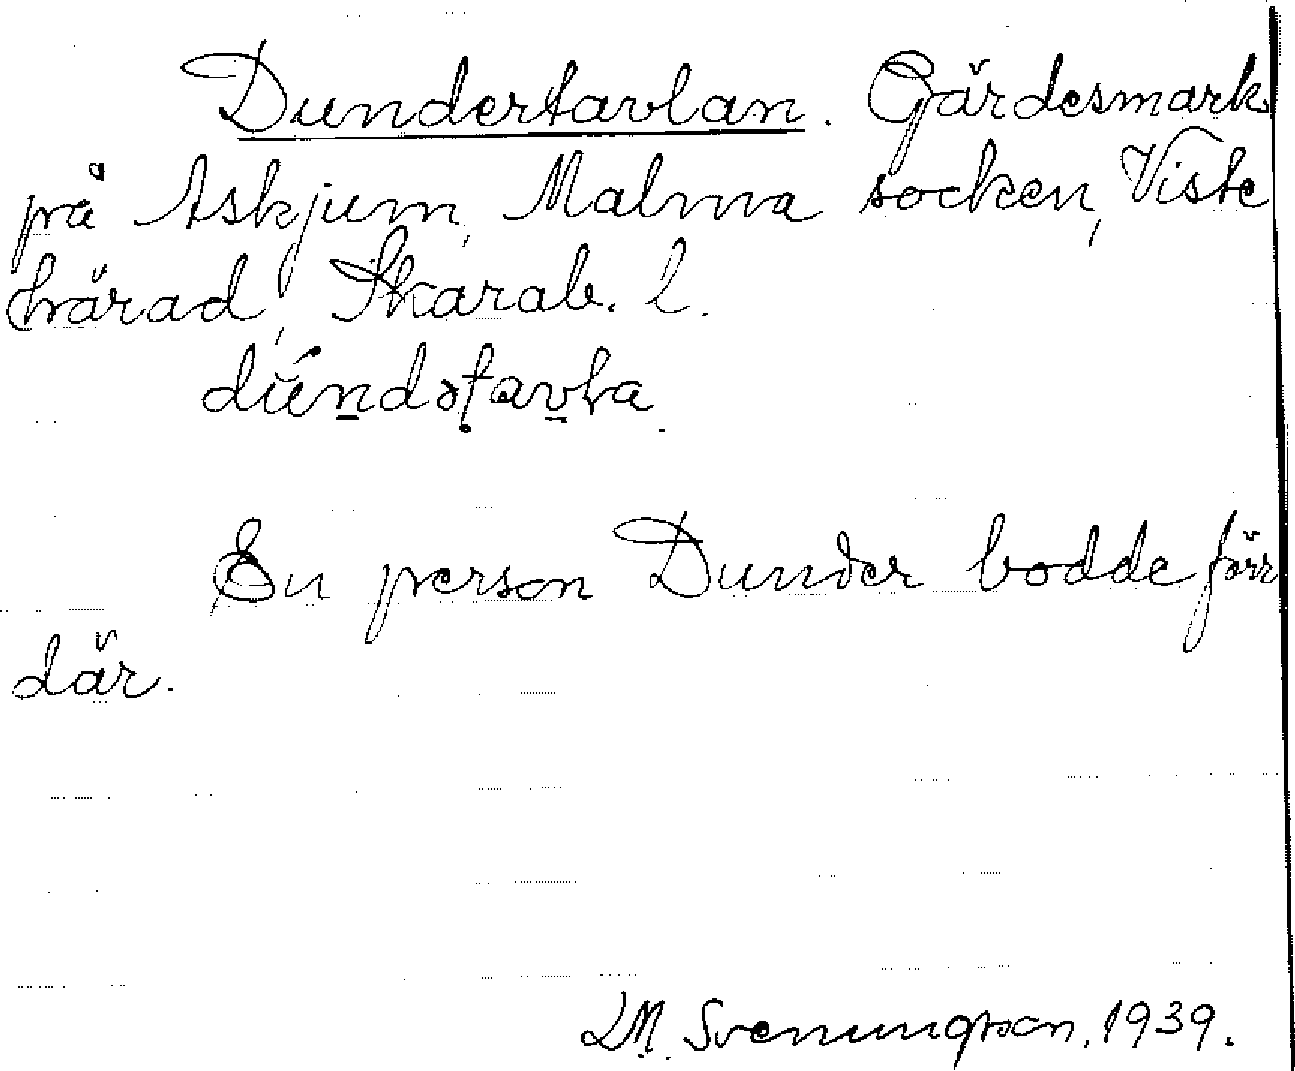 Dundertavlan. Gärdesmark
på Askjum, Malma socken, Viste
härad, Skarab. l.
dúndətavla.
En person Dunder bodde förr
där.
D.M. Svenungsson, 1939.